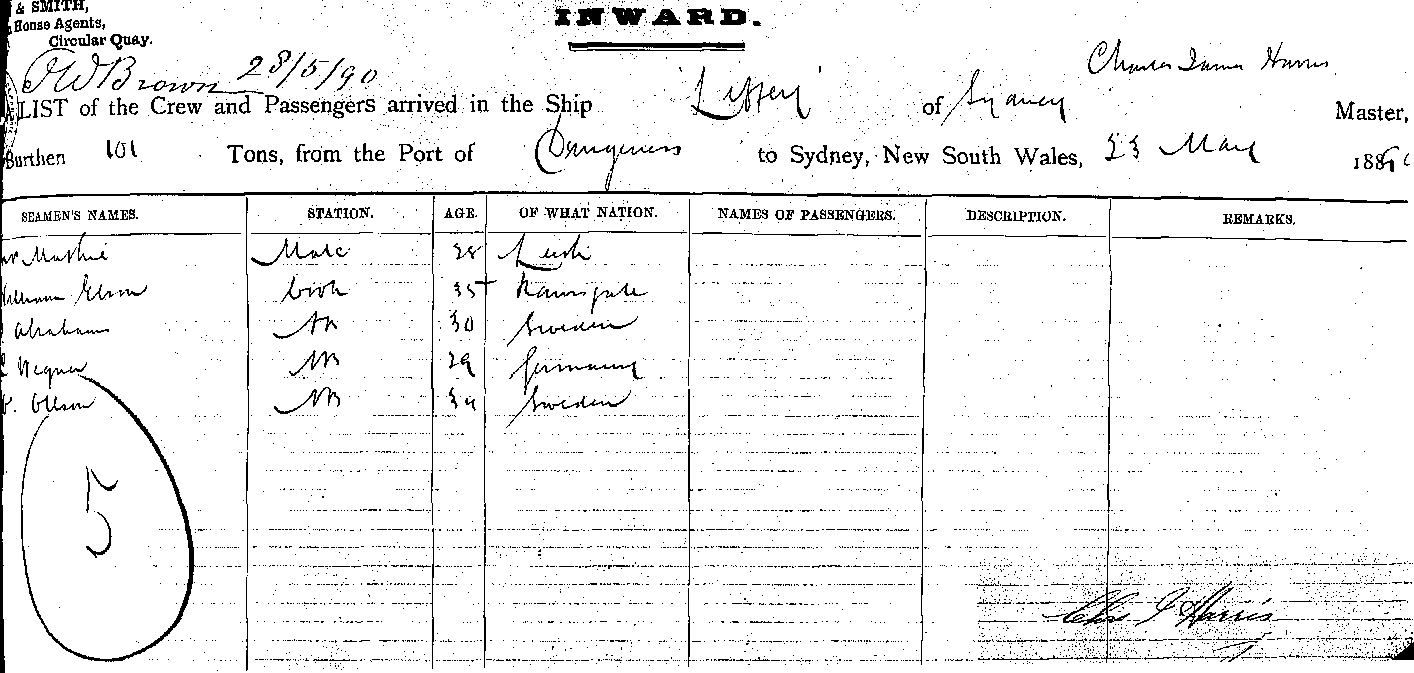 & SMITH,
House Agents,
Circular Quay.
INWARD.
J W Brown 28/5/90
Charles James Harris
LIST of the Crew and Passengers arrived in the Ship of Sydney Master,
Burthen 101 Tons, from the Port of to Sydney, New South Wales, 23 May 18890
SEAMEN'S NAMES. STATION. AGE. OF WHAT NATION. NAMES OF PASSENGERS. DESCRIPTION. REMARKS.
Mathie Mate 28 Leith
William Elson Cook 35 Ramsgate
Abrahams AB 30 Sweden
Wegner AB 29 Germany
Olson AB 34 Sweden
5
Chs J Harris